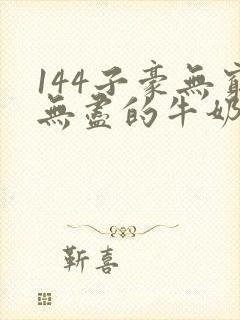 144子豪無窮
無盡的牛奶
靳喜